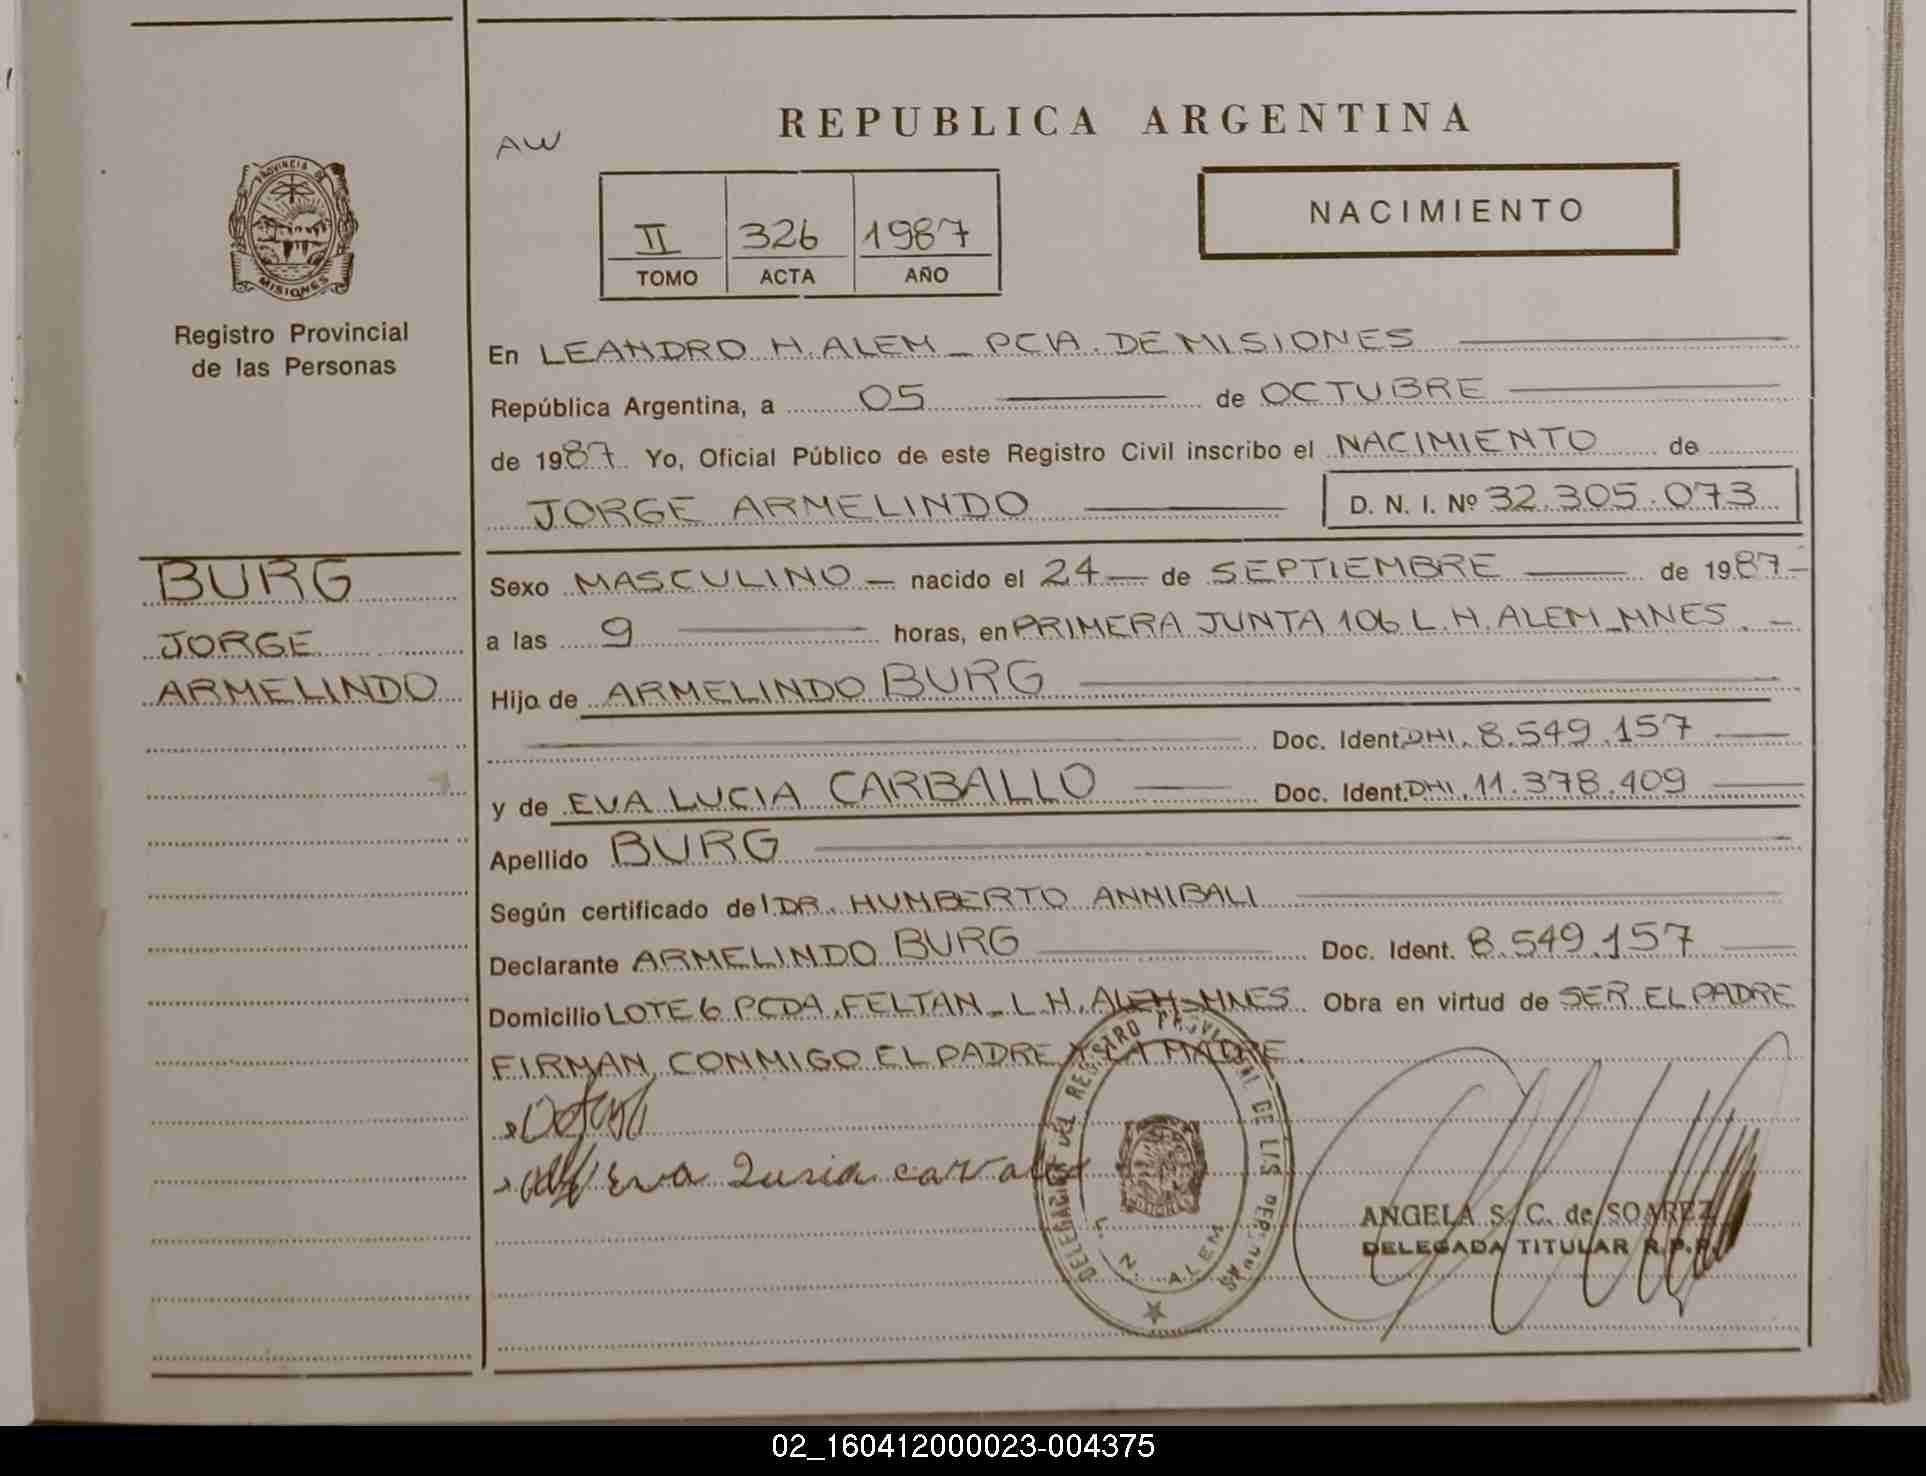 REPUBLICA ARGENTINA
AW
PROVINCIA DE
MISIONES
Registro Provincial
de las Personas
II 326 1987
TOMO ACTA AÑO
NACIMIENTO
En LEANDRO N. ALEM - PCIA. DE MISIONES
República Argentina, a 05 de OCTUBRE
de 1987. Yo, Oficial Público de este Registro Civil inscribo el NACIMIENTO de
JORGE ARMELINDO D. N. I. Nº 32.305.073
BURG
JORGE
ARMELINDO
Sexo MASCULINO - nacido el 24 - de SEPTIEMBRE de 1987 -
a las 9 horas, en PRIMERA JUNTA 106 L. N. ALEM - MNES. -
Hijo de ARMELINDO BURG
Doc. Ident. DNI. 8.549.157
y de EVA LUCIA CARBALLO Doc. Ident. DNI. 11.378.409
Apellido BURG
Según certificado de l DR. HUMBERTO ANNIBALI
Declarante ARMELINDO BURG Doc. Ident. 8.549.157
Domicilio LOTE 6 PCDA. FELTAN - L. N. ALEM - MNES Obra en virtud de SER EL PADRE
FIRMAN CONMIGO EL PADRE Y LA MADRE.
Eva Lusia carvallo
DELEGACION DEL REGISTRO PROVINCIAL DE LAS PERSONAS
L. N. ALEM
ANGELA S. C. de SOAREZ
DELEGADA TITULAR R.P.P.
02_160412000023-004375